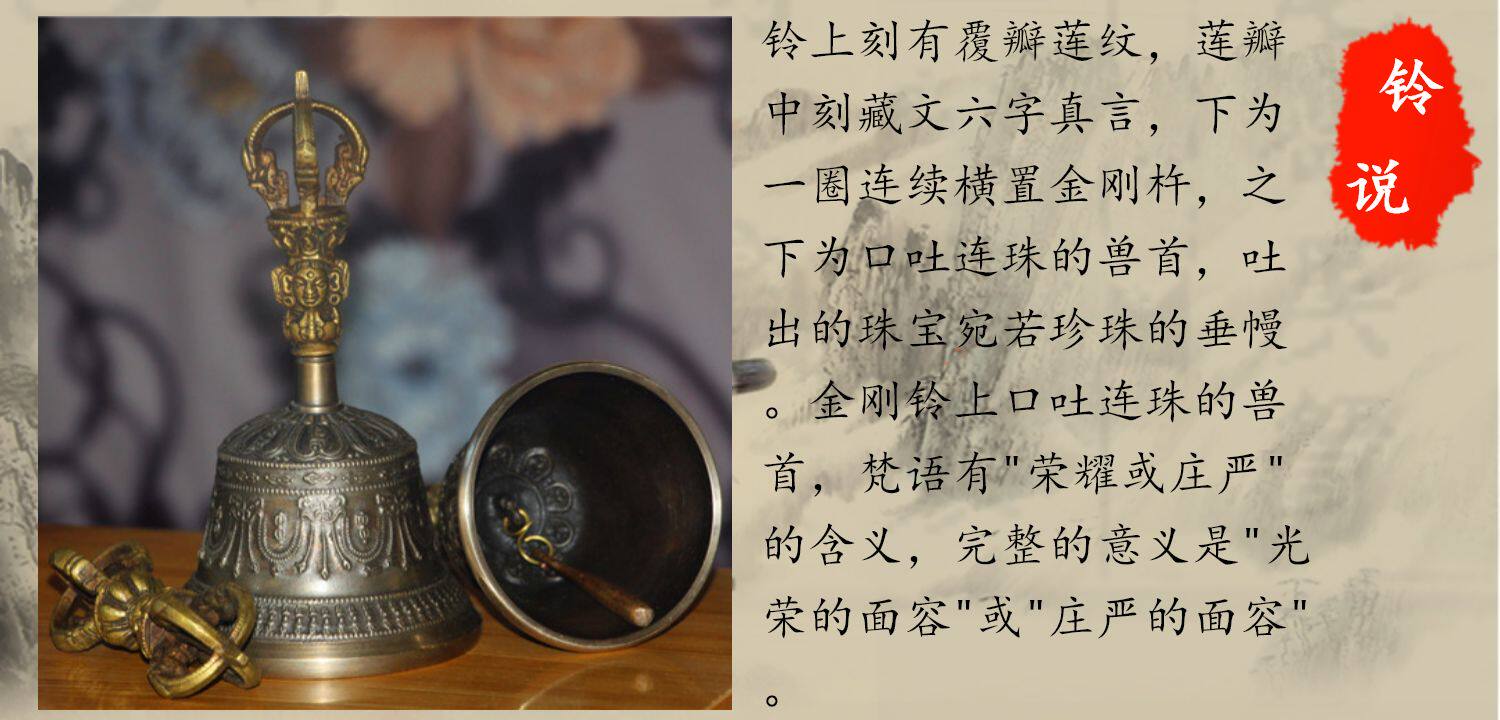 铃上刻有覆瓣莲纹，莲瓣
中刻藏文六字真言，下为
一圈连续横置金刚杵，之
下为口吐连珠的兽首，吐
出的珠宝宛若珍珠的垂幔
。金刚铃上口吐连珠的兽
首，梵语有"荣耀或庄严"
的含义，完整的意义是"光
荣的面容"或"庄严的面容"
。
铃
说